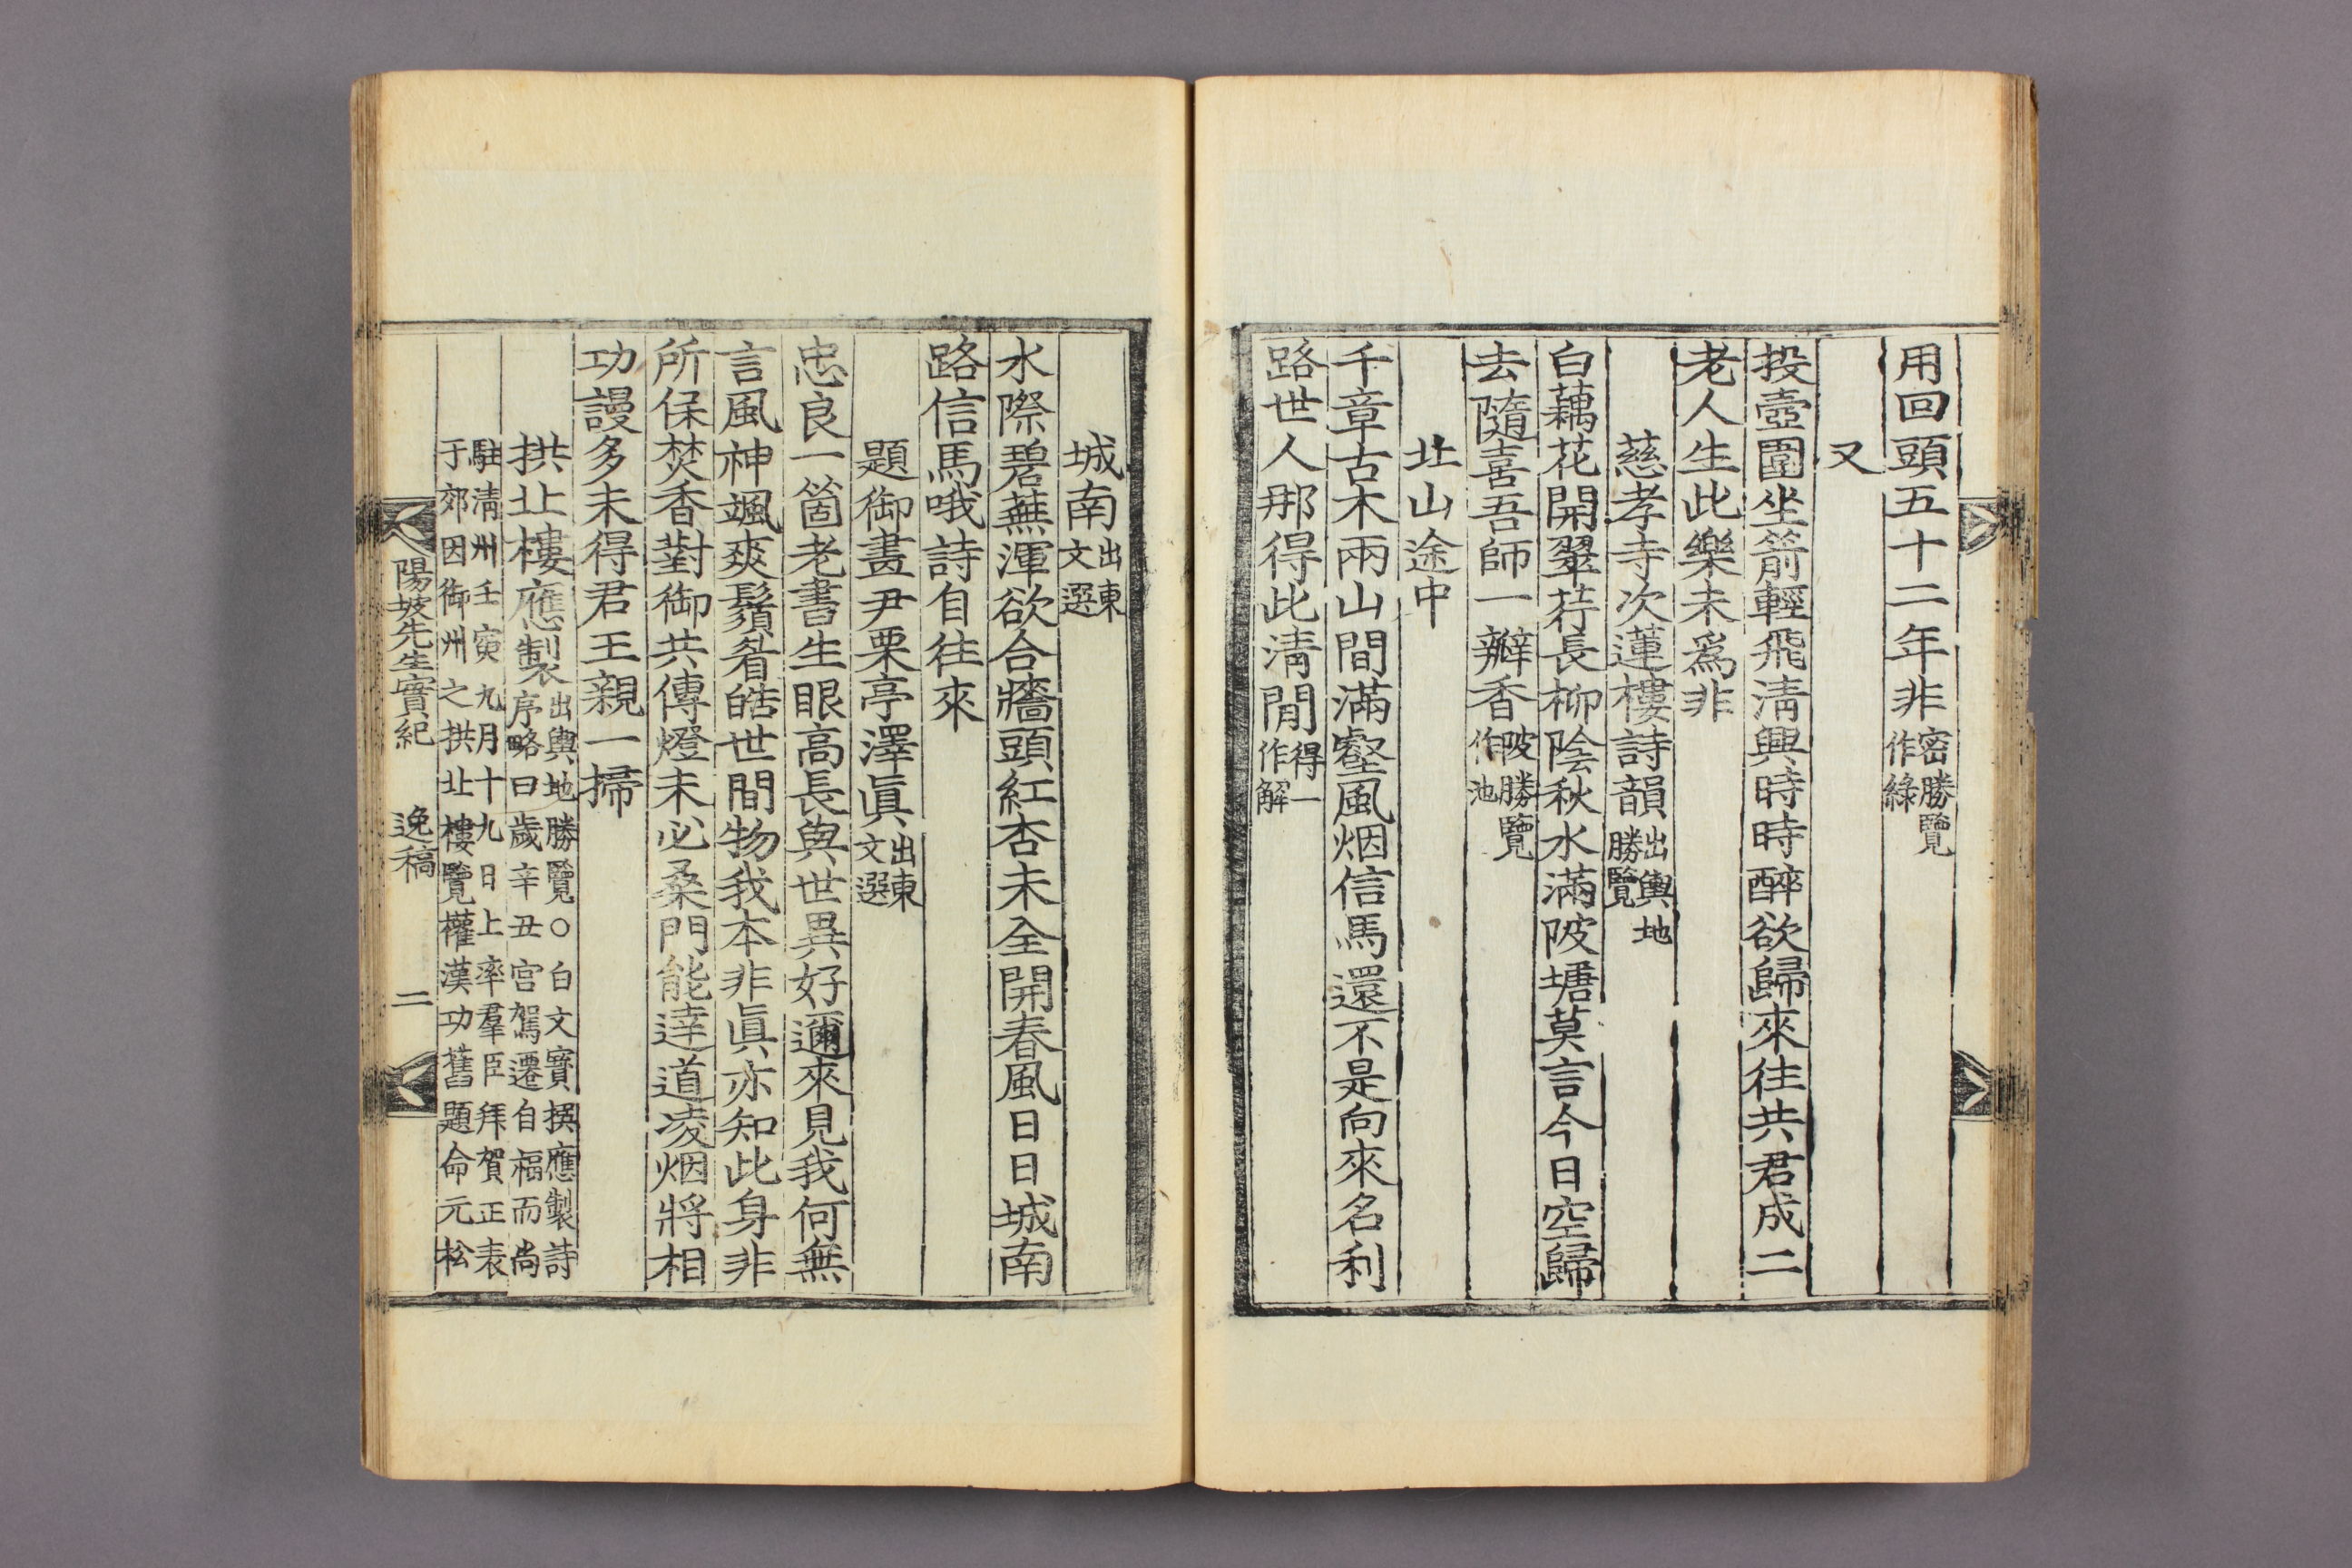 用回頭五十二年非密勝覽
作綠
又
投壺圍坐箭輕飛淸興時時醉欲歸來往共君成二
老人生此樂未爲非
慈孝寺次蓮樓詩韻出輿地
勝覽
白藕花開翠荇長柳陰秋水滿陂塘莫言今日空歸
去隨喜吾師一瓣香陂勝覽
作池
北山途中
千章古木兩山間滿壑風烟信馬還不是向來名利
路世人那得此淸閒得一
作解
城南出東
文選
水際碧蕪渾欲合牆頭紅杏未全開春風日日城南
路信馬哦詩自往來
題御畫尹栗亭澤眞出東
文選
忠良一箇老書生眼高長與世異好邇來見我何無
言風神颯爽鬚眉皓世間物我本非眞亦知此身非
所保焚香對御共傳燈未必桑門能達道凌烟將相
功謾多未得君王親一掃
拱北樓應製出輿地勝覽○白文寶撰應製詩
序略曰歲辛丑宮駕遷自福而尙
駐淸州壬寅九月十九日上率羣臣拜賀正表
于郊因御州之拱北樓覽權漢功舊題命元松
陽坡先生實紀 逸稿 二